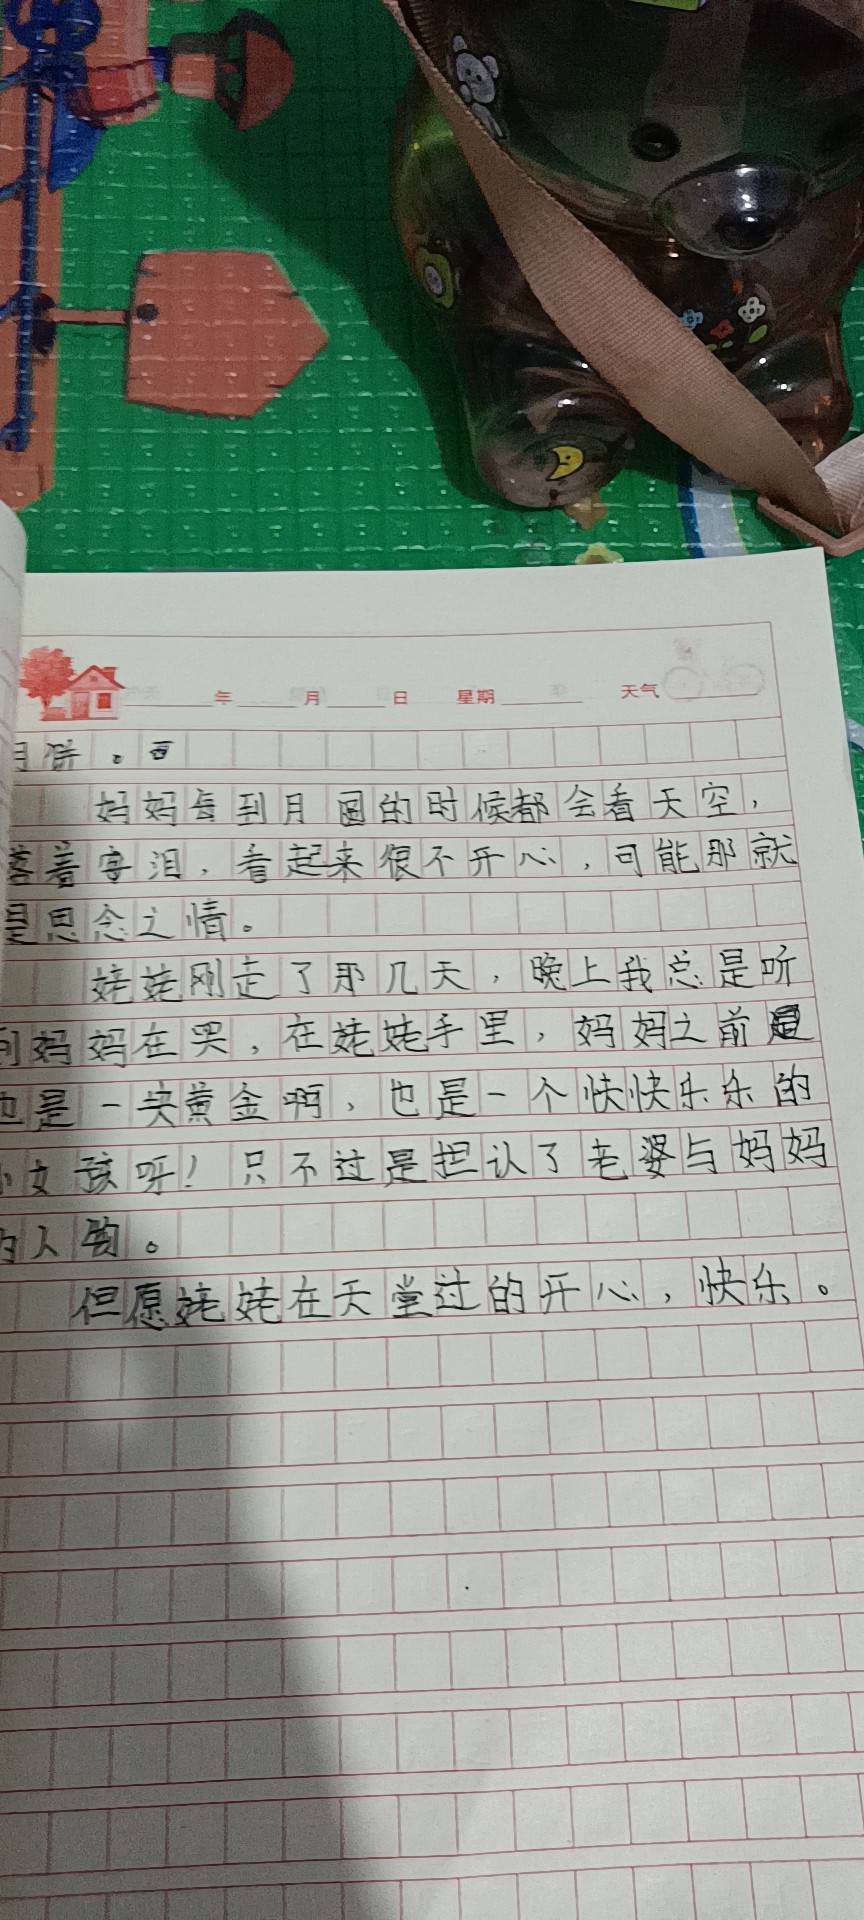 年 月 日 星期 天气
月饼。
妈妈每到月圆的时候都会看天空，
落着字泪，看起来很不开心，可能那就
是思念之情。
姥姥刚走了那几天，晚上我总是听
到妈妈在哭，在姥姥手里，妈妈之前是
也是一块黄金啊，也是一个快快乐乐的
小女孩呀！只不过是担认了老婆与妈妈
的人物。
但愿姥姥在天堂过的开心，快乐。